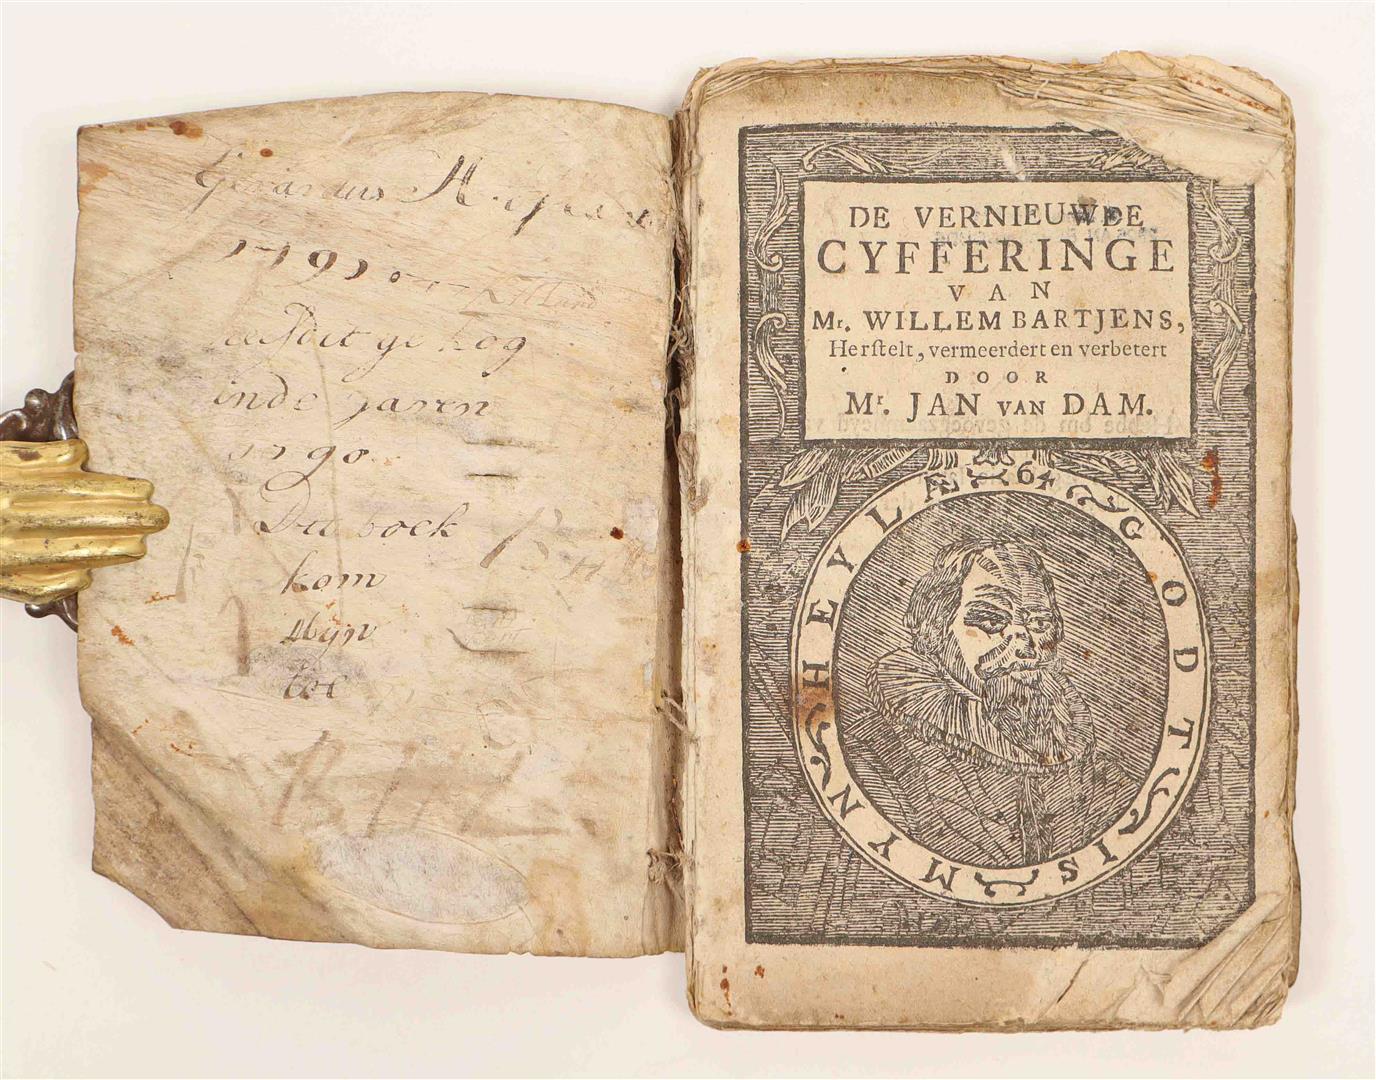 Gerardus
1791
heefdit ge kog
inde jaren
1790
Dit boek
kom
Mijn
toe
DE VERNIEUWDE
CYFFERINGE
VAN
Mr. WILLEM BARTJENS,
Herstelt, vermeerdert en verbetert
DOOR
Mr. JAN VAN DAM.
Æ 64 GODT IS MYN HEYL